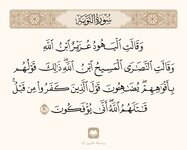 سورة التوبة
وَقَالَتِ ٱلْيَهُودُ عُزَيْرٌ ٱبْنُ ٱللَّهِ
وَقَالَتِ ٱلنَّصَٰرَى ٱلْمَسِيحُ ٱبْنُ ٱللَّهِ ذَٰلِكَ قَوْلُهُم
بِأَفْوَٰهِهِمْ يُضَٰهِـُٔونَ قَوْلَ ٱلَّذِينَ كَفَرُوا۟ مِن قَبْلُ
قَٰتَلَهُمُ ٱللَّهُ أَنَّىٰ يُؤْفَكُونَ ٣٠